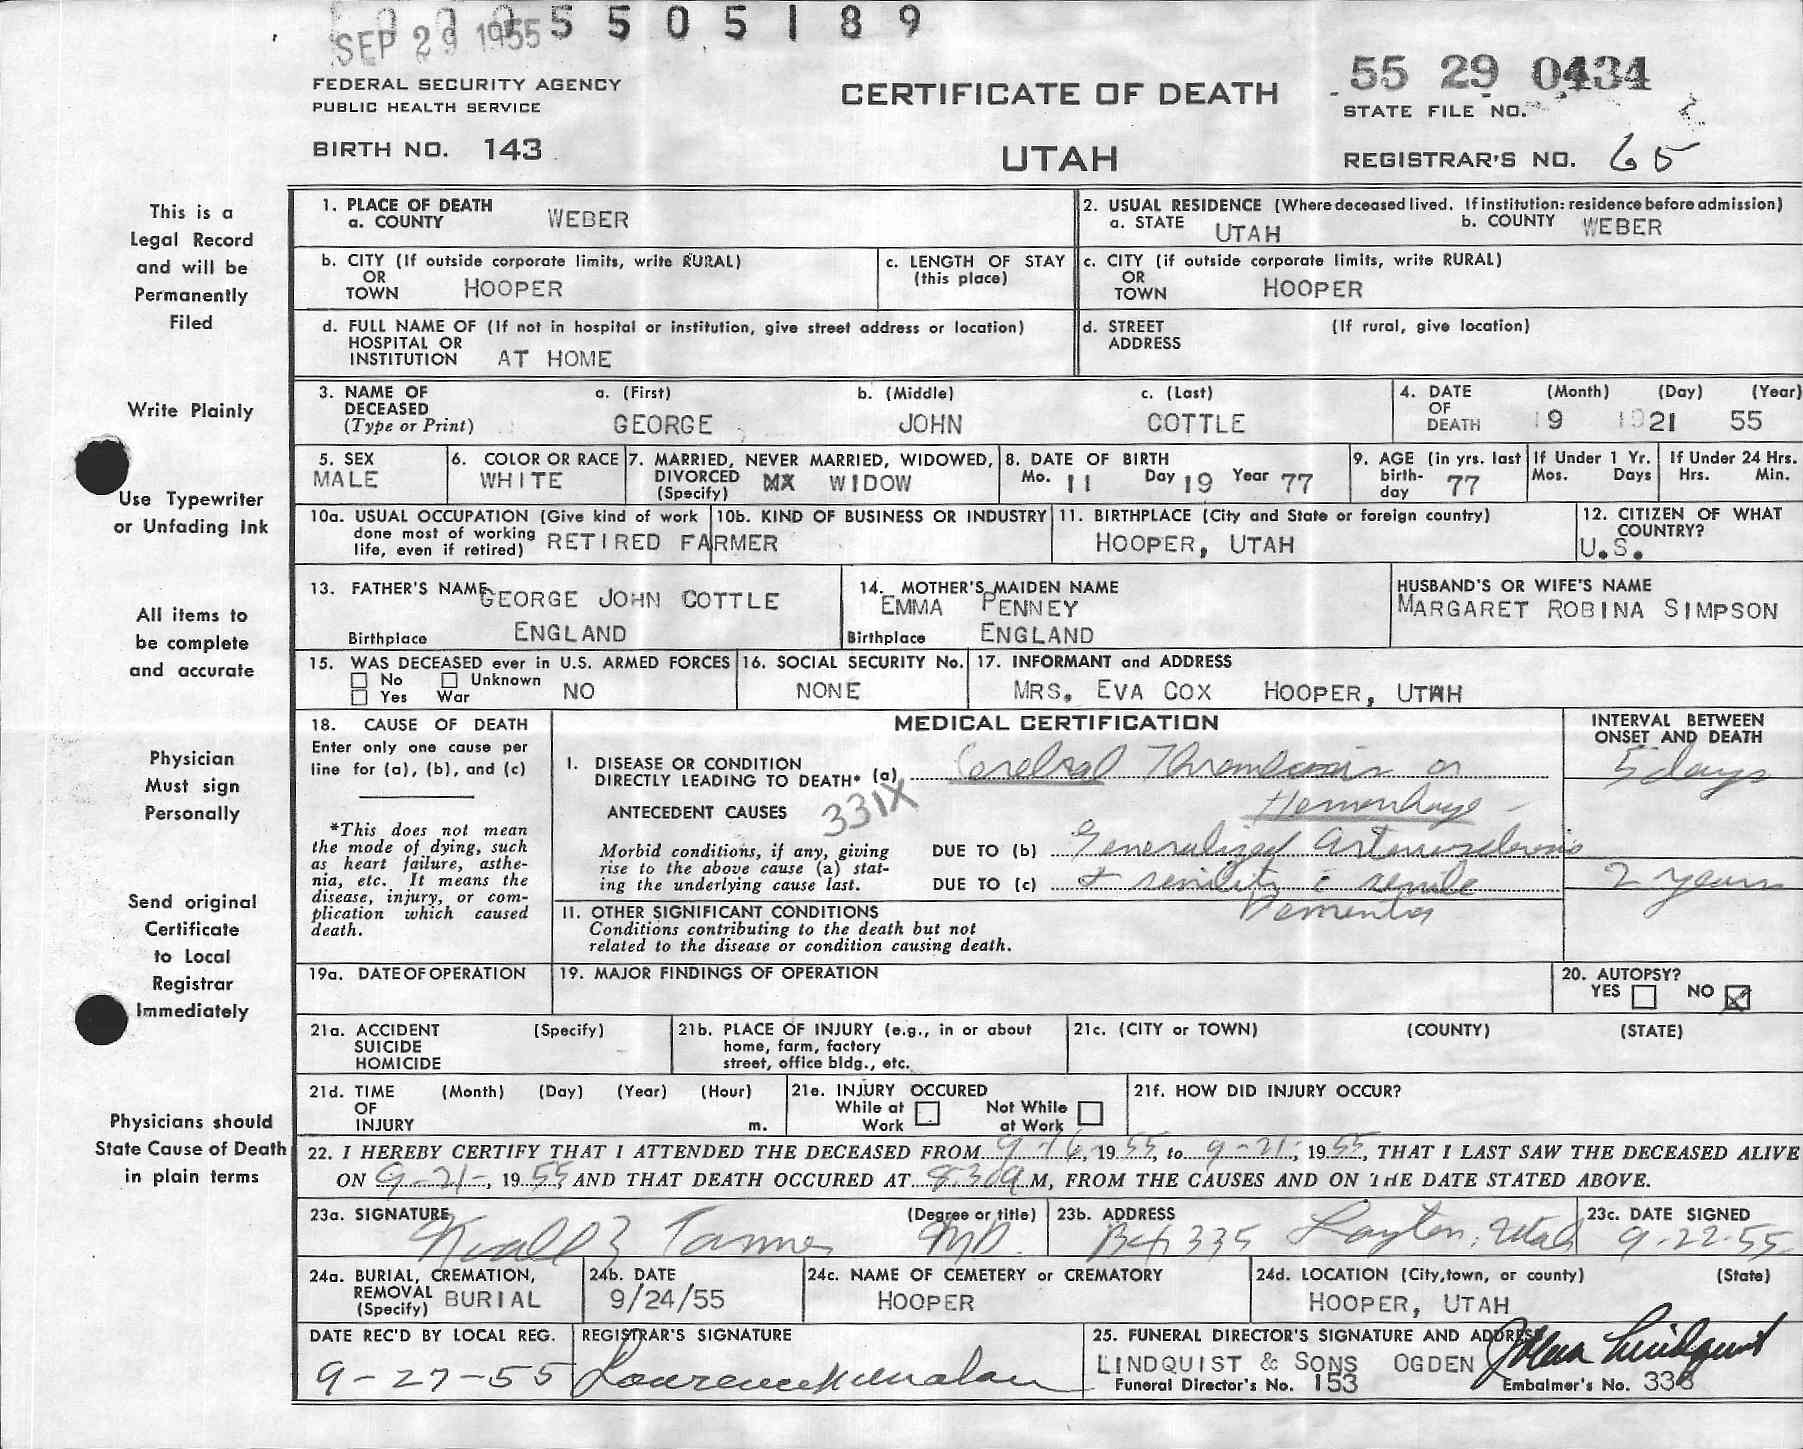 0005505189
SEP 29 1955
FEDERAL SECURITY AGENCY
PUBLIC HEALTH SERVICE
BIRTH NO. 143
CERTIFICATE OF DEATH
UTAH
55 29 0434
STATE FILE NO.
REGISTRAR'S NO. 65
This is a
Legal Record
and will be
Permanently
Filed
Write Plainly
Use Typewriter
or Unfading Ink
All items to
be complete
and accurate
Physician
Must sign
Personally
Send original
Certificate
to Local
Registrar
Immediately
Physicians should
State Cause of Death
in plain terms
1. PLACE OF DEATH
a. COUNTY WEBER
2. USUAL RESIDENCE (Where deceased lived. If institution: residence before admission)
a. STATE UTAH b. COUNTY WEBER
b. CITY (If outside corporate limits, write RURAL)
OR
TOWN HOOPER
c. LENGTH OF STAY
(this place)
c. CITY (if outside corporate limits, write RURAL)
OR
TOWN HOOPER
d. FULL NAME OF (If not in hospital or institution, give street address or location)
HOSPITAL OR
INSTITUTION AT HOME
d. STREET (If rural, give location)
ADDRESS
3. NAME OF a. (First) b. (Middle) c. (Last)
DECEASED
(Type or Print) GEORGE JOHN COTTLE
4. DATE (Month) (Day) (Year)
OF
DEATH 9 21 55
5. SEX
MALE
6. COLOR OR RACE
WHITE
7. MARRIED, NEVER MARRIED, WIDOWED,
DIVORCED MX WIDOW
(Specify)
8. DATE OF BIRTH
Mo. 11 Day 19 Year 77
9. AGE (in yrs. last
birth-
day 77
If Under 1 Yr.
Mos. Days
If Under 24 Hrs.
Hrs. Min.
10a. USUAL OCCUPATION (Give kind of work
done most of working
life, even if retired) RETIRED FARMER
10b. KIND OF BUSINESS OR INDUSTRY
11. BIRTHPLACE (City and State or foreign country)
HOOPER, UTAH
12. CITIZEN OF WHAT
COUNTRY?
U.S.
13. FATHER'S NAME GEORGE JOHN COTTLE
Birthplace ENGLAND
14. MOTHER'S MAIDEN NAME
EMMA PENNEY
Birthplace ENGLAND
HUSBAND'S OR WIFE'S NAME
MARGARET ROBINA SIMPSON
15. WAS DECEASED ever in U.S. ARMED FORCES
No Unknown
Yes War NO
16. SOCIAL SECURITY No.
NONE
17. INFORMANT and ADDRESS
MRS. EVA COX HOOPER, UTAH
18. CAUSE OF DEATH
Enter only one cause per
line for (a), (b), and (c)
*This does not mean
the mode of dying, such
as heart failure, asthe-
nia, etc. It means the
disease, injury, or com-
plication which caused
death.
MEDICAL CERTIFICATION
INTERVAL BETWEEN
ONSET AND DEATH
I. DISEASE OR CONDITION
DIRECTLY LEADING TO DEATH* (a) Cerebral Thrombosis or
Hemorrhage -
5 days
ANTECEDENT CAUSES 331X
Morbid conditions, if any, giving
rise to the above cause (a) stat-
ing the underlying cause last.
DUE TO (b) Generalized Arteriosclerosis
DUE TO (c) & senility c senile
Dementia
2 years
II. OTHER SIGNIFICANT CONDITIONS
Conditions contributing to the death but not
related to the disease or condition causing death.
19a. DATE OF OPERATION
19. MAJOR FINDINGS OF OPERATION
20. AUTOPSY?
YES NO
21a. ACCIDENT (Specify)
SUICIDE
HOMICIDE
21b. PLACE OF INJURY (e.g., in or about
home, farm, factory
street, office bldg., etc.
21c. (CITY or TOWN) (COUNTY) (STATE)
21d. TIME (Month) (Day) (Year) (Hour)
OF
INJURY m.
21e. INJURY OCCURED
While at Not While
Work at Work
21f. HOW DID INJURY OCCUR?
22. I HEREBY CERTIFY THAT I ATTENDED THE DECEASED FROM 9-16, 1955, to 9-21-, 1955, THAT I LAST SAW THE DECEASED ALIVE
ON 9-21-, 1955 AND THAT DEATH OCCURED AT 8:30a M, FROM THE CAUSES AND ON THE DATE STATED ABOVE.
23a. SIGNATURE (Degree or title)
Tanner MD.
23b. ADDRESS
Bx 335 Layton, Utah
23c. DATE SIGNED
9-22-55
24a. BURIAL, CREMATION,
REMOVAL
(Specify) BURIAL
24b. DATE
9/24/55
24c. NAME OF CEMETERY or CREMATORY
HOOPER
24d. LOCATION (City, town, or county) (State)
HOOPER, UTAH
DATE REC'D BY LOCAL REG.
9-27-55
REGISTRAR'S SIGNATURE
25. FUNERAL DIRECTOR'S SIGNATURE AND ADDRESS
LINDQUIST & SONS OGDEN John Lindquist
Funeral Director's No. 153 Embalmer's No. 336